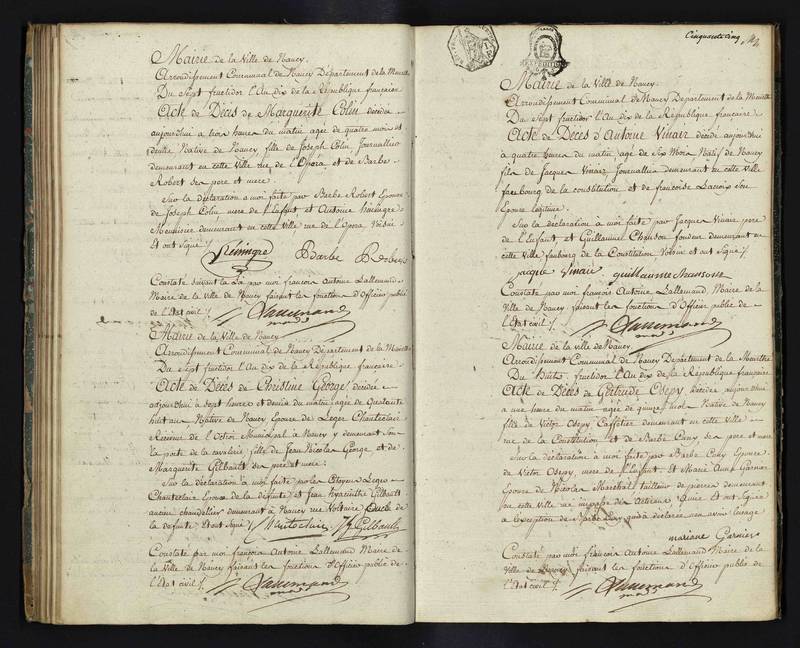 Mairie de la Ville de Nancy
Arrondissement Communal de Nancy Département de la Meurthe
Du Sept fructidor l'An dix de la République française
Acte de Décès de Marguerite Colin décédée
aujourd'hui à trois heures du matin agée de quatre mois et
demie Native de Nancy fille de Joseph Colin Journallier
demeurant en cette Ville rue de l'Opéra et de Barbe
Robert ses pere et mere
Sur la déclaration à moi faite par Barbe Robert Epouse
de Joseph Colin mere de l'Enfant et Antoine
Menuisier demeurant en cette Ville rue de l'Opera Voisin
Et ont Signé
Barbe Robert
Constaté suivant la Loi par moi françois Antoine Lallemand
Maire de la Ville de Nancy faisant les fonctions d'Officier public
de l'Etat civil /.
Lallemand
Mairie de la Ville de Nancy
Arrondissement Communal de Nancy Département de la Meurthe
Du Sept fructidor l'An dix de la République française
Acte de Décès de Christine George décédée
aujourd'hui à sept heures et demie du matin agée de Quarante
huit ans Native de Nancy Epouse de Leger Chanteclair
Receveur de l'Octroi Municipal à Nancy y demeurant
la porte de la cavalerie, fille de Jean Nicolas George et de
Marguerite Gilbault ses pere et mere
Sur la déclaration à moi faite par les Citoyens Leger
Chanteclaire Epoux de la defunte et Jean hyacinthe Gilbault
ancien chandellier demeurant à Nancy rue Voltaire Oncle de
la defunte Et ont Signé / Chanteclair J h Gilbault
Constaté par moi françois Antoine Lallemand Maire de
la Ville de Nancy faisant les fonctions d'Officier public de
l'Etat civil /.
Lallemand
Cinquante cinq
Mairie de la Ville de Nancy
Arrondissement Communal de Nancy Département de la Meurthe
Du Sept fructidor l'An dix de la République française
Acte de Décès d'Antoine Vinair décédé aujourd'hui
à quatre heures du matin agé de Six Mois Natif de Nancy
fils de Jacques Vinair Journallier demeurant en cette Ville
faubourg de la constitution et de françoise Lacroix son
Epouse légitime
Sur la déclaration à moi faite par Jacques Vinair pere
de l'Enfant, et Guillaume Chanson fondeur demeurant en
cette Ville faubourg de la Constitution Voisin et ont Signé /.
jacque Vinair guillaumme chansonn
Constaté par moi françois Antoine Lallemand, Maire de la
Ville de Nancy, faisant les fonctions d'Officier public de
l'Etat civil /.
Lallemand
Mairie de la ville de Nancy
Arrondissement Communal de Nancy Département de la Meurthe
Du huit fructidor l'An dix de la République française
Acte de Décès de Gertrude Osepy décédée aujourd'hui
à une heure du matin agée de quinze mois Native de Nancy
fille de Victor Osepy Caffetier demeurant en cette Ville
rue de la Constitution et de Barbe Cuny ses pere et mere
Sur la déclaration à moi faite par Barbe Cuny Epouse
de Victor Osepy, mere de l'Enfant et Marie Anne Garnier
Epouse de Nicolas Maréchal tailleur de pierres demeurant
en cette Ville rue
à l'exception de Barbe Cuny qui à déclaré
mariane Garnier
Constaté par moi françois Antoine Lallemand Maire de la
Ville de Nancy faisant les fonctions d'Officier public de
l'Etat civil /.
Lallemand